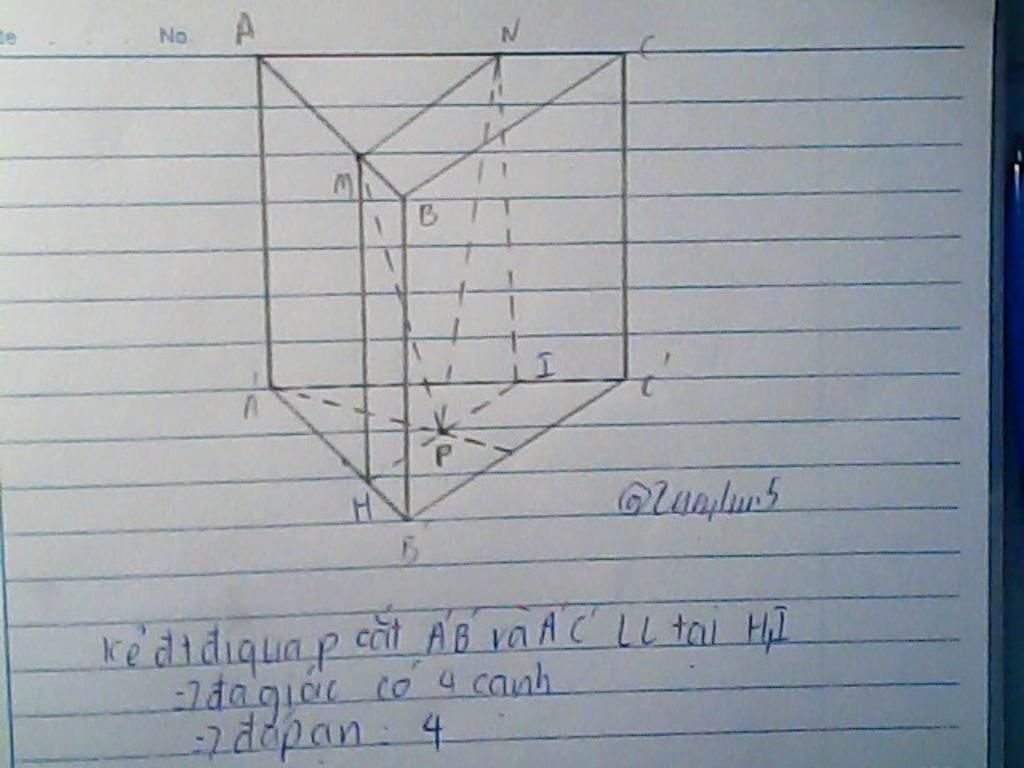 No
A N C
M
B
I
A' C'
P
H
B'
kẻ đt đi qua p cắt A'B' và A'C' LL tại H,I
=> đa giác có 4 cạnh
=> đáp án : 4